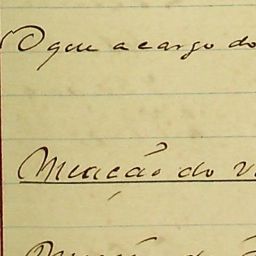 O que a cargo do
Meação do v